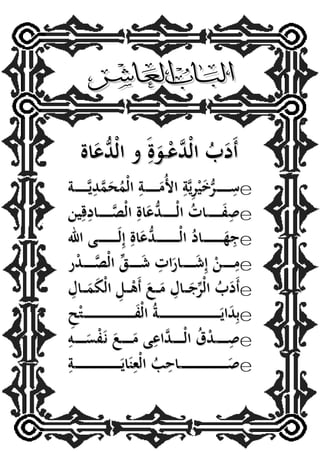 الباب العاشر
أَدَبُ الْدَّعْوَةِ و الْدُّعَاة
سِرُّخَيْرِيَّةِ الأُمَةِ الْمُحَمَّدِيَّة
صِفَاتُ الْدُّعَاةِ الْصَّادِقِين
جِهَادُ الْدُّعَاةِ إِلَى الله
مِنْ إِشَارَاتِ شَقِّ الْصَّدْر
أَدَبُ الْرِّجَالِ مَعَ أَهْلِ الْكَمَال
بِدَايَةُ الْفَتْح
صِدْقُ الْدَّاعِى مَعَ نَفْسَه
صَاحِبُ الْعِنَايَة